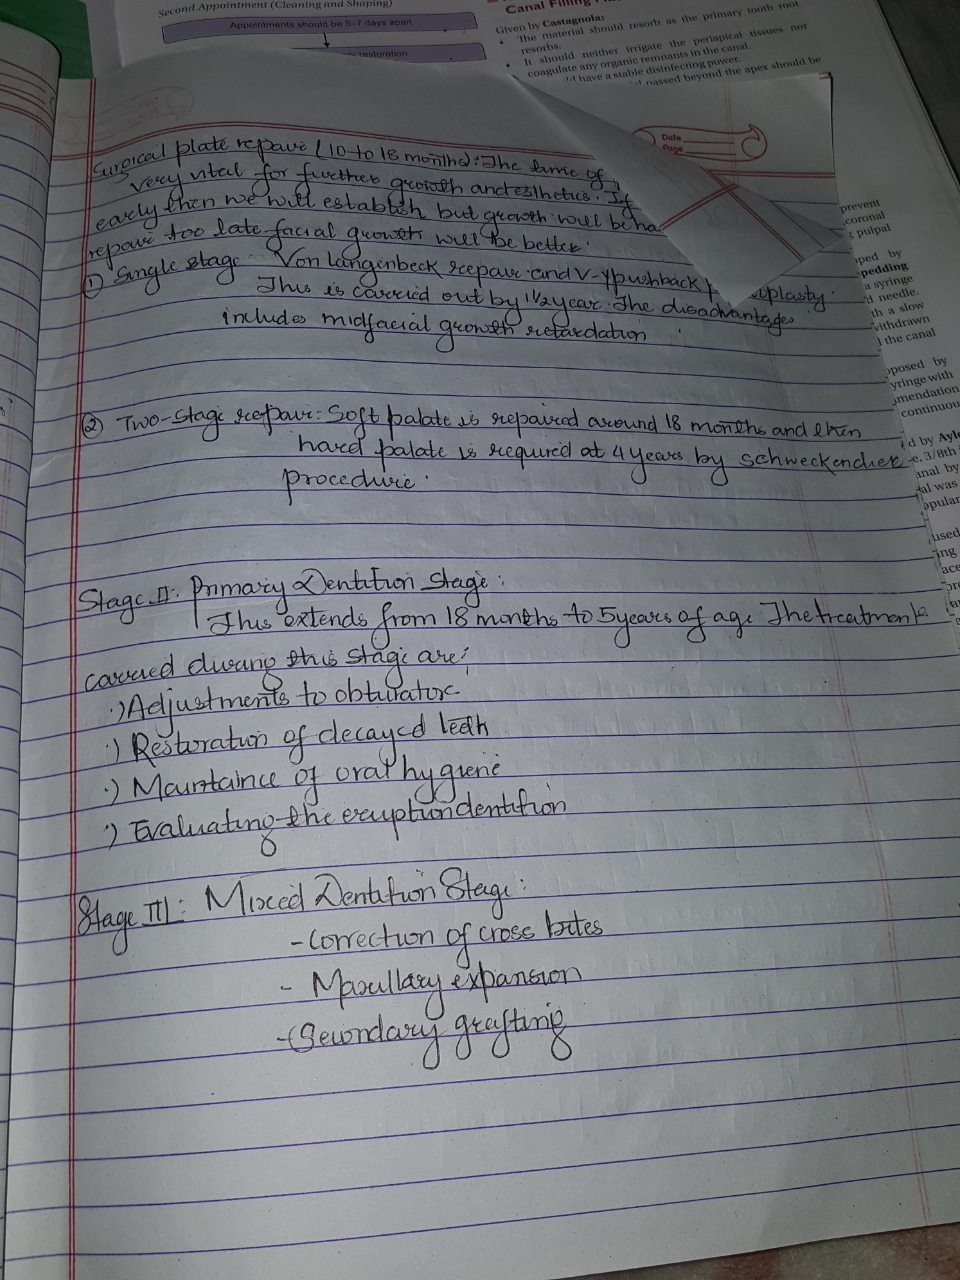 Second Appointment (Cleaning and Shaping)
Appointments should be 5–7 days apart
restoration
Canal Filling
Given by Castagnola:
• The material should resorb as the primary tooth root
resorbs.
• It should neither irrigate the periapical tissues nor
coagulate any organic remnants in the canal.
have a stable disinfecting power.
passed beyond the apex should be
Date
Page
Surgical plate repair (10 to 18 months): The time of
very vital for further growth and esthetics. If
early then we will establish but growth will be ha
repair too late facial growth will be better.
① Single stage: Von langenbeck repair and V-Ypushback oplasty.
This is carried out by 1 1/2 year. The disadvantages
includes midfacial growth retardation
② Two-stage repair: Soft palate is repaired around 18 months and then
hard palate is required at 4 years by schweckendiek
procedure.
Stage II: Primary Dentition Stage:
This extends from 18 months to 5 years of age The treatment
carried during this stage are:
·) Adjustments to obturator
·) Restoration of decayed teeth
·) Maintaince of oral hygiene
·) Evaluating the eruption dentition
Stage III: Mixed Dentition Stage:
- Correction of cross bites
- Maxillary expansion
- Secondary grafting
prevent
coronal
pulpal
ped by
pedding
a syringe
needle.
th a slow
withdrawn
the canal
posed by
yringe with
mendation
continuou
d by Ayl
e, 3/8th
anal by
al was
opular
used
ing
ace